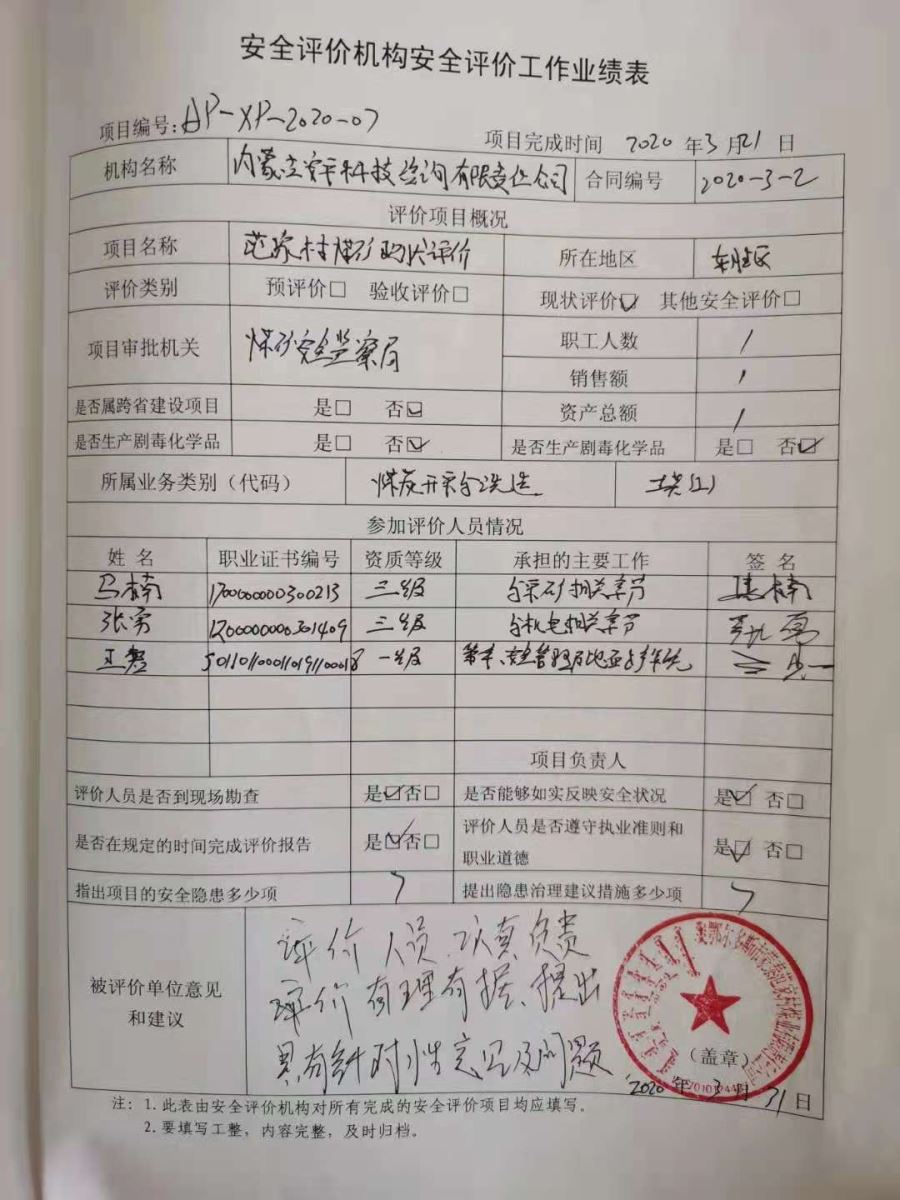 安全评价机构安全评价工作业绩表
项目编号:AP-XP-2020-07
项目完成时间 2020 年3月21日
机构名称 内蒙古安平科技咨询有限责任公司 合同编号 2020-3-2
评价项目概况
项目名称 范家村煤矿现状评价 所在地区 东胜区
评价类别 预评价□ 验收评价□ 现状评价☑ 其他安全评价□
项目审批机关 煤矿安全监察局 职工人数 /
销售额 /
是否属跨省建设项目 是□ 否☑ 资产总额 /
是否生产剧毒化学品 是□ 否☑ 是否生产剧毒化学品 是□ 否☑
所属业务类别（代码） 煤炭开采和洗选
参加评价人员情况
姓 名 职业证书编号 资质等级 承担的主要工作 签 名
马楠 1700000000300213 三级 与采矿相关章节 马楠
张勇 1200000000301409 三级 与机电相关章节 张勇
一级
项目负责人
评价人员是否到现场勘查 是☑否□ 是否能够如实反映安全状况 是☑ 否□
是否在规定的时间完成评价报告 是☑否□ 评价人员是否遵守执业准则和
职业道德 是☑ 否□
指出项目的安全隐患多少项 7 提出隐患治理建议措施多少项 7
被评价单位意见
和建议
评价人员认真负责
评价有理有据、提出
具有针对性意见及问题
（盖章）
2020 年 3 月 31 日
注：1.此表由安全评价机构对所有完成的安全评价项目均应填写。
2.要填写工整，内容完整，及时归档。